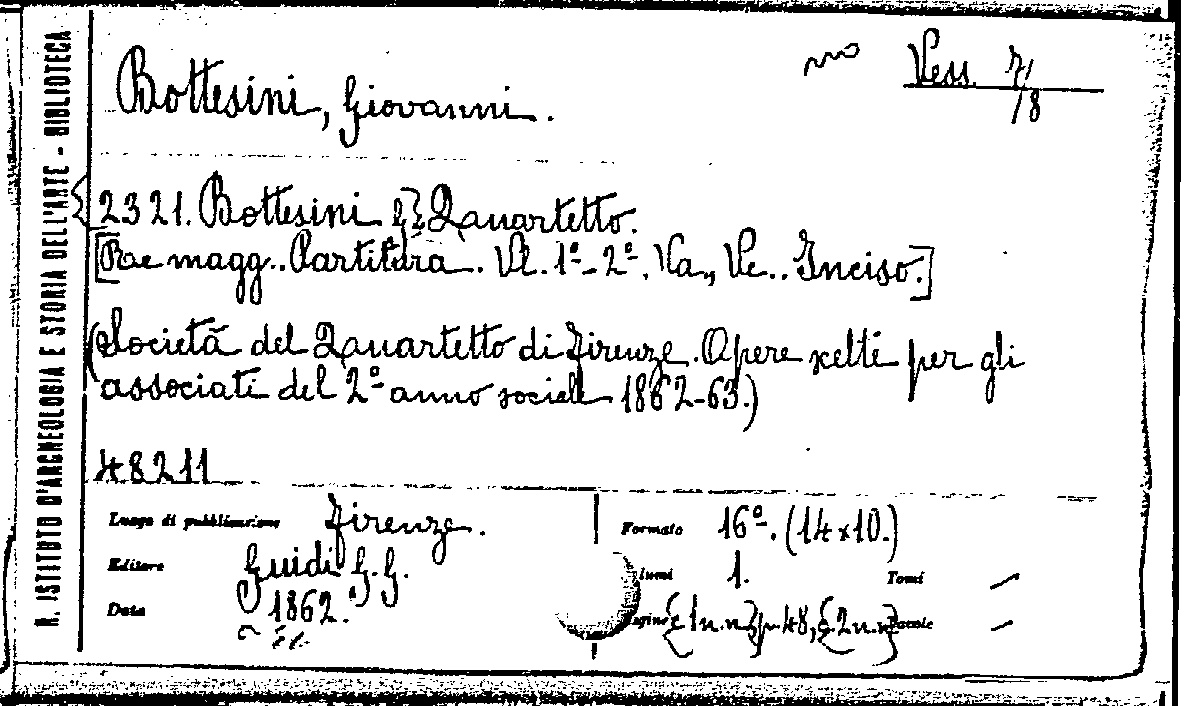 R. ISTITUTO D'ARCHEOLOGIA E STORIA DELL'ARTE - BIBLIOTECA
Vess. 7/8
Bottesini, Giovanni.
2321. Bottesini Quartetto.
[Re magg.. Partitura. Vl. 1º-2º. Va., Vc.. Inciso.]
(Società del Quartetto di Firenze. Opere scelte per gli
associati del 2º anno sociale 1862-63.)
48211
Luogo di pubblicazione Firenze.
Formato 16º. (14x10.)
Editore Guidi G.G.
lumi 1. Tomi —
Data 1862.
agine {1 n.n.} p. 48, {2 n.n.} Tavole —